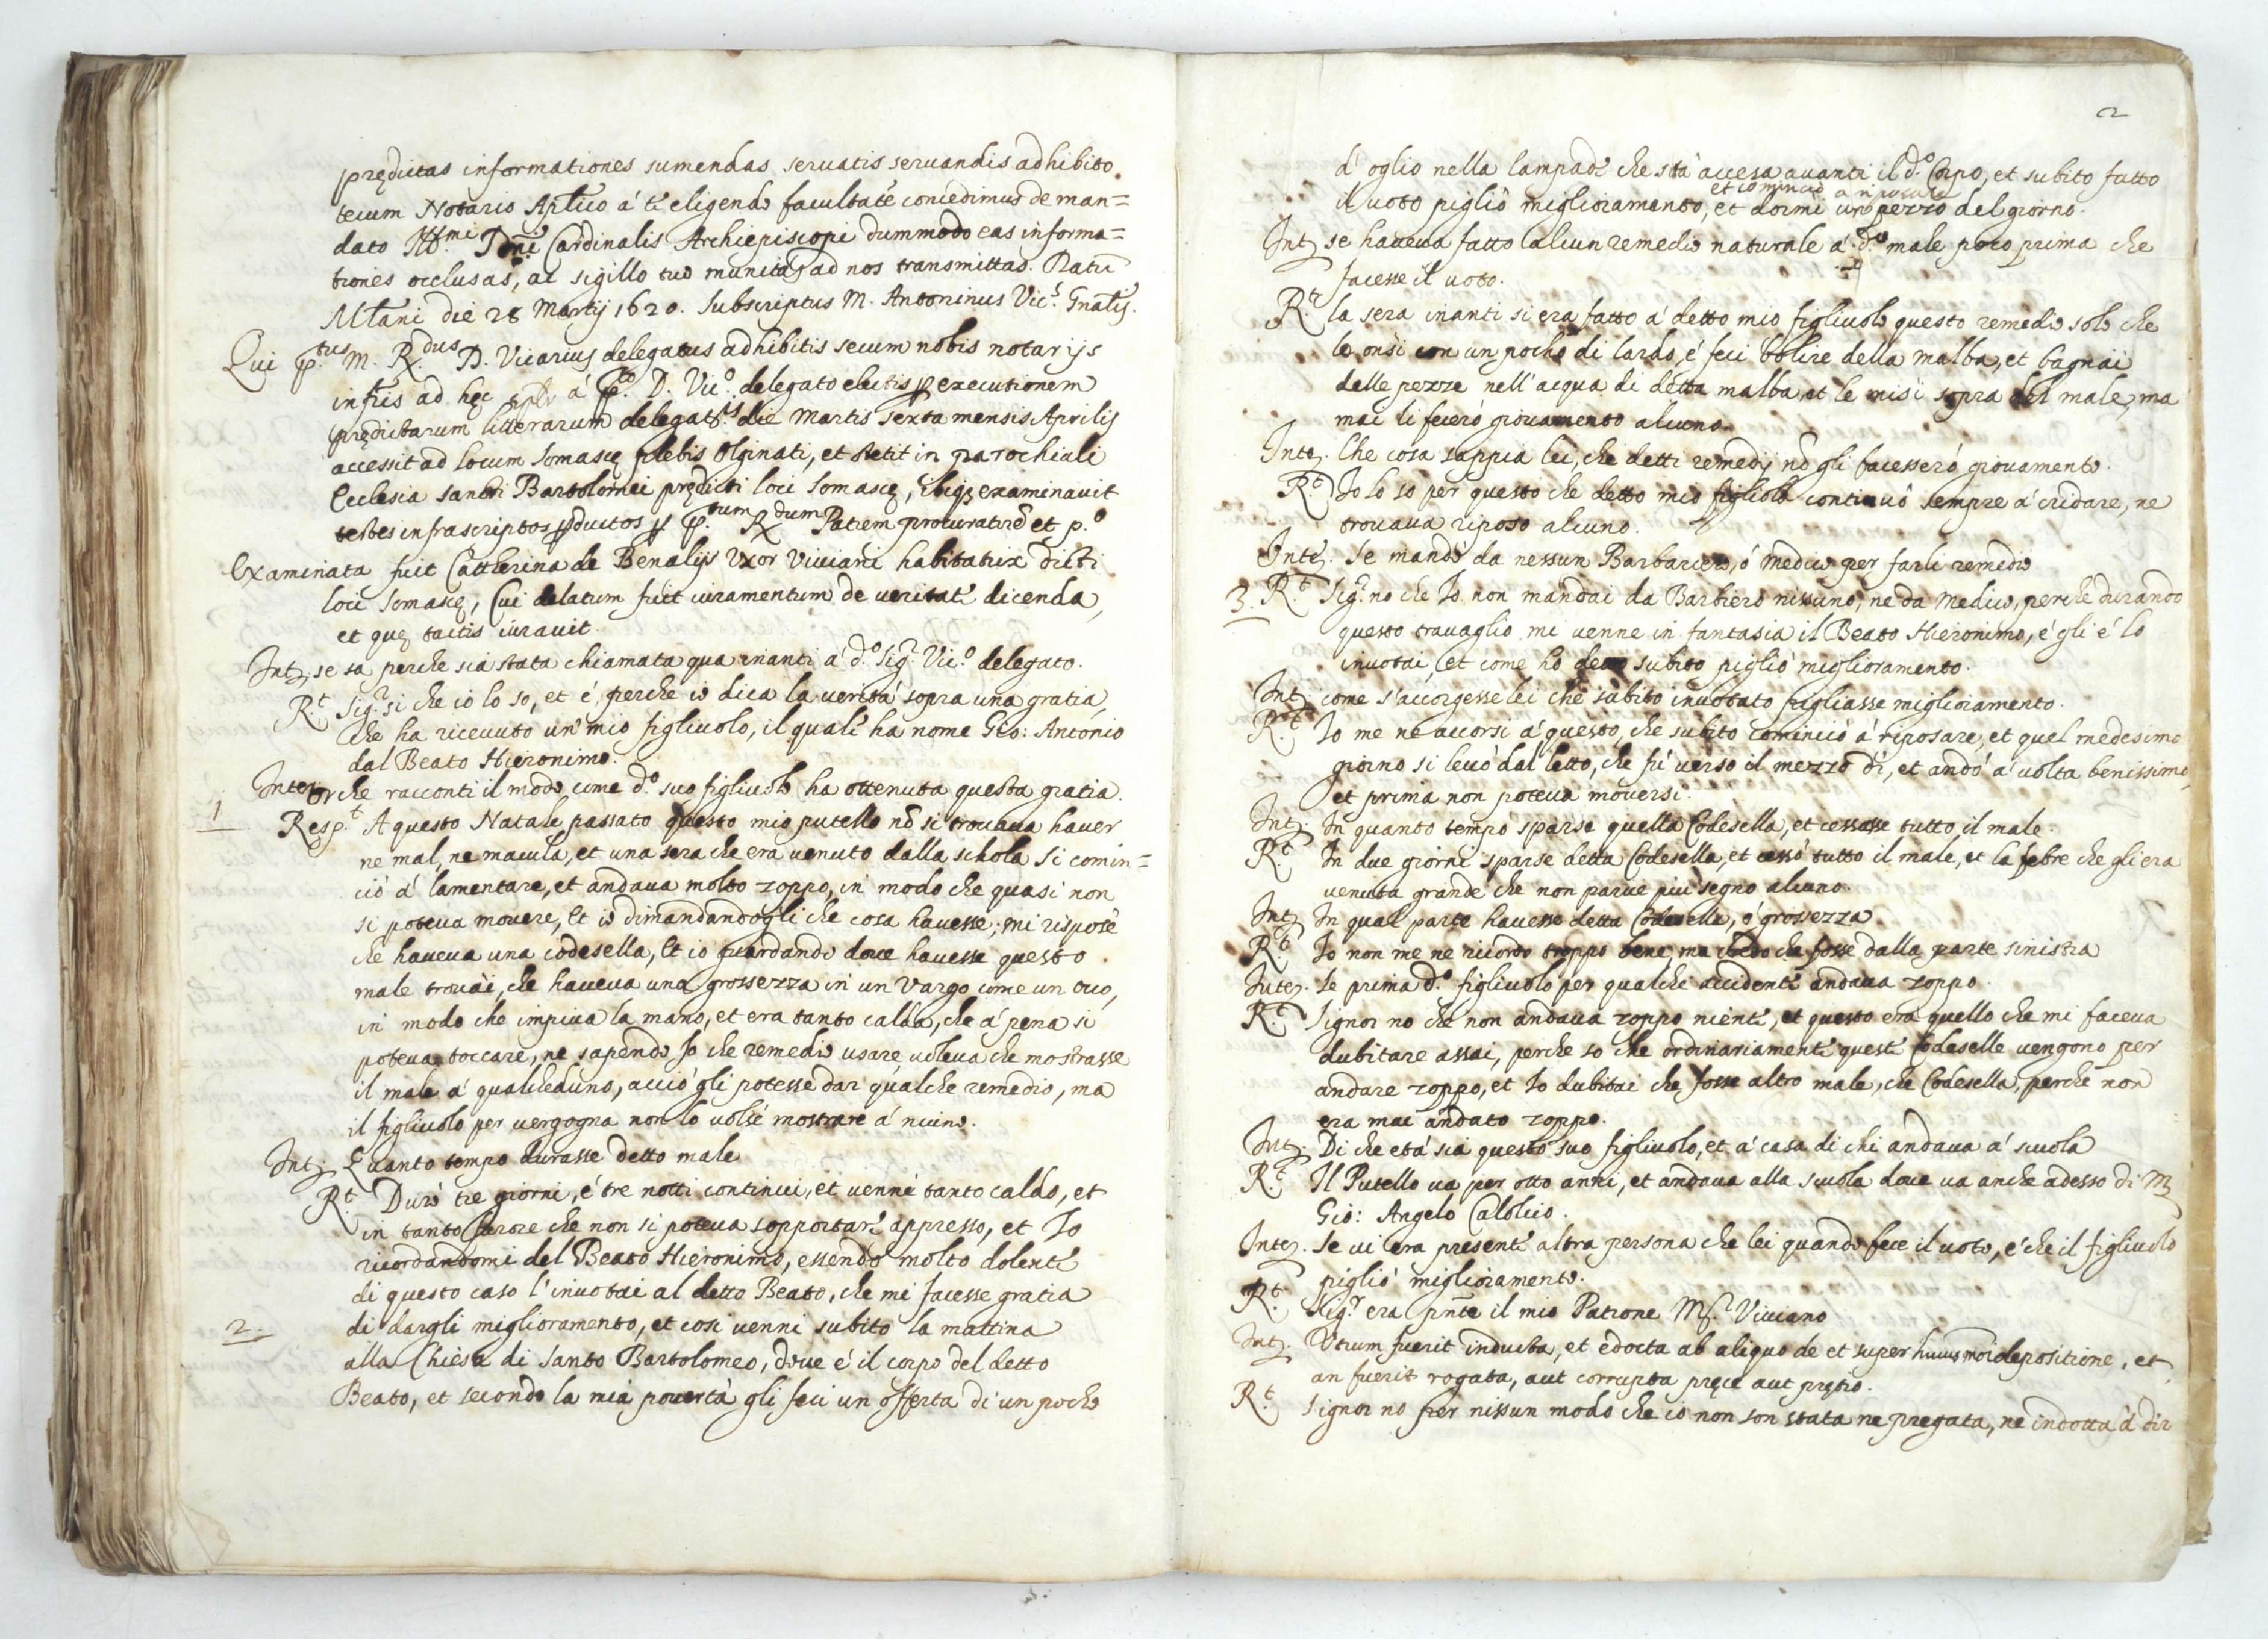 prędictas informationes sumendas seruatis seruandis adhibito
tecum Notario Aplico á te eligendo facultatē concedimus de man=
dato Ill.mi Dñi Cardinalis Archiepiscopi dummodo eas informa=
tiones occlusas, ac sigillo tuo munitas ad nos transmittas. Datū
Mlani die 28 Martij 1620. Subscriptus M. Antoninus Vic.s Gnalis.
Qui p.tus M. R.dus D. Vicarius delegatus adhibitis secum nobis notarijs
infris ad hęc á p.to D. Vic.o delegato electis executionem
prędictarum litterarum delegat. die Martis sexta mensis Aprilis
accessit ad locum Somascę plebis Olginati, et stetit in parochiali
Ecclesia Sancti Bartolomei prędicti loci Somascę, ibiq; examinauit
testes infrascriptos ductos p p.tum R.dum Patrem procuratorē et p.o
Examinata fuit Catherina de Benalijs Vxor Viuiani habitatrix dicti
loci Somascę, Cui delatum fuit iuramentum de veritate dicenda,
et quę tactis iurauit.
Int; se sa perche sia stata chiamata qua inanti á d.o Sig.r Vic.o delegato.
R.t Sig.r si che io lo so, et é perche io dica la verità sopra una gratia,
che ha riceuuto un' mio figliuolo, il quale ha nome Gio: Antonio
dal Beato Hieronimo.
Inter che racconti il modo come d.o suo figliuolo ha ottenuta questa gratia.
1 Resp.t A questo Natale passato questo mio putello nō si trouaua hauer
ne mal, ne macula, et una sera che era venuto dalla schola si comin=
ció á lamentare, et andaua molto zoppo, in modo che quasi non
si poteua mouere, Et io dimandandogli che cosa hauesse, mi rispose
che haueua una codesella, Et io guardando doue hauesse questo
male trouai, che haueua una grossezza in un Vargo come un ouo,
in modo che impiua la mano, et era tanto calda, che á pena si
poteua toccare, ne sapendo Io che remedio usare, uoleua che mostrasse
il male á qualcheduno, acció gli potesse dar qualche remedio, ma
il figliuolo per uergogna non lo uolse mostrare á niuno.
Int; Quanto tempo durasse detto male
R.t Durò tre giorni, é tre notti continui, et uenne tanto caldo, et
in tanto furore che non si poteua sopportare appresso, et Io
ricordandomi del Beato Hieronimo, essendo molto dolente
di questo caso l'inuotai al detto Beato, che mi facesse gratia
2. di dargli miglioramento, et cosi uenni subito la mattina
alla Chiesa di Santo Bartolomeo, doue é il corpo del detto
Beato, et secondo la mia pouertà gli feci un offerta di un pocho
2
d'oglio nella lampade che sta accesa auanti il d.o Corpo, et subito fatto
et cominciò a riposare
il uoto pigliò miglioramento, et dormì un pezzo del giorno.
Int; se haueua fatto alcun remedio naturale á d.o male poco prima che
facesse il uoto.
R.t la sera inanti si era fatto á detto mio figliuolo questo remedio solo che
lo onsi con un pocho di lardo, é feci bolire della malba, et bagnai
delle pezze nell'acqua di detta malba et le misi sopra del male, ma
mai li feceró giouamento alcuno.
Inte; Che cosa sappia lei, che detti remedij nō gli facesseró giouamento.
R.t Io lo so per questo che detto mio figliolo continuó sempre á cridare, ne
trouaua riposo alcuno.
Inte; Se mandó da nessun Barbiero, ó Medico per farli remedio
3. R.t Sig.r no che Io non mandai da Barbiero nissuno, ne da Medico, perche durando
questo trauaglio mi uenne in fantasia il Beato Hieronimo, é gli é lo
inuotai, et come hó detto subito piglió miglioramento.
Int; come s'accorgesse lei che subito inuotato pigliasse miglioramento.
R.t Io me ne accorsi á questo, che subito cominció á riposare, et quel medesimo
giorno si leuó dal letto, che fú verso il mezzo dì, et andó á uolta benissimo,
et prima non poteua mouersi.
Int; In quanto tempo sparse quella Codesella, et cessasse tutto il male.
R.t In due giorni sparse detta Codesella, et cessó tutto il male, et la febre che gli era
uenuta grande che non parue piu segno alcuno.
Int; In qual parte hauesse detta Codesella, ó grossezza.
R.t Io non me ne ricordo troppo bene, ma credo che fosse dalla parte sinistra
Inte; Se prima d.o figliuolo per qualche accidente andaua zoppo
R.t Signor no che non andaua zoppo niente, et questo era quello che mi faceua
dubitare assai, perche so che ordinariamente queste Codeselle uengono per
andare zoppo, et Io dubitai che fosse altro male, che Codesella, perche non
era mai andato zoppo.
Int; Di che età sia questo suo figliuolo, et á casa di chi andaua á scuola
R.t Il Putello ua per otto anni, et andaua alla scuola doue ua anche adesso di M
Gio: Angelo Calolcio.
Inte; Se ui era presente altra persona che lei quando fece il uoto, é che il figliuolo
piglió miglioramento.
R.t Sig.r era pnte il mio Patrone Ms. Viuiano
Int; Utrum fuerit inducta, et edocta ab aliquo de et super huiusmoi depositione, et
an fuerit rogata, aut corrupta prece aut pretio.
R.t Signor no per nissun modo che io non son stata ne pregata, ne indotta á dir